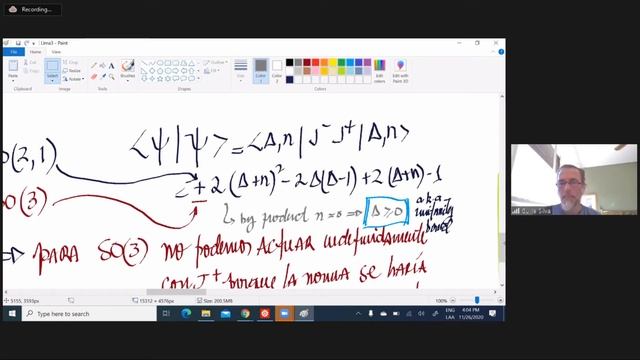 Recording...
Lima3 - Paint
File Home View
Paste
Select
Crop
Resize
Rotate
Brushes
Outline
Fill
Size
Color 1
Color 2
Edit colors
Edit with Paint 3D
Clipboard Image Tools Shapes Colors
⟨ψ|ψ⟩ = ⟨Δ,n| J⁻ J⁺ |Δ,n⟩
O(2,1)
+ 2 (Δ+n)² - 2Δ(Δ-1) + 2 (Δ+n) - 1
O(3)
↳ by product n=0 ⇒ Δ ≥ 0 a.k.a. unitarity bound
⇒ PARA SO(3) no podemos actuar indefinidamente
con J⁺ porque la norma se haría
5155, 3595px 15312 × 4576px Size: 200.5MB 100%
Type here to search
ENG
LAA
4:04 PM
11/26/2020
Silva